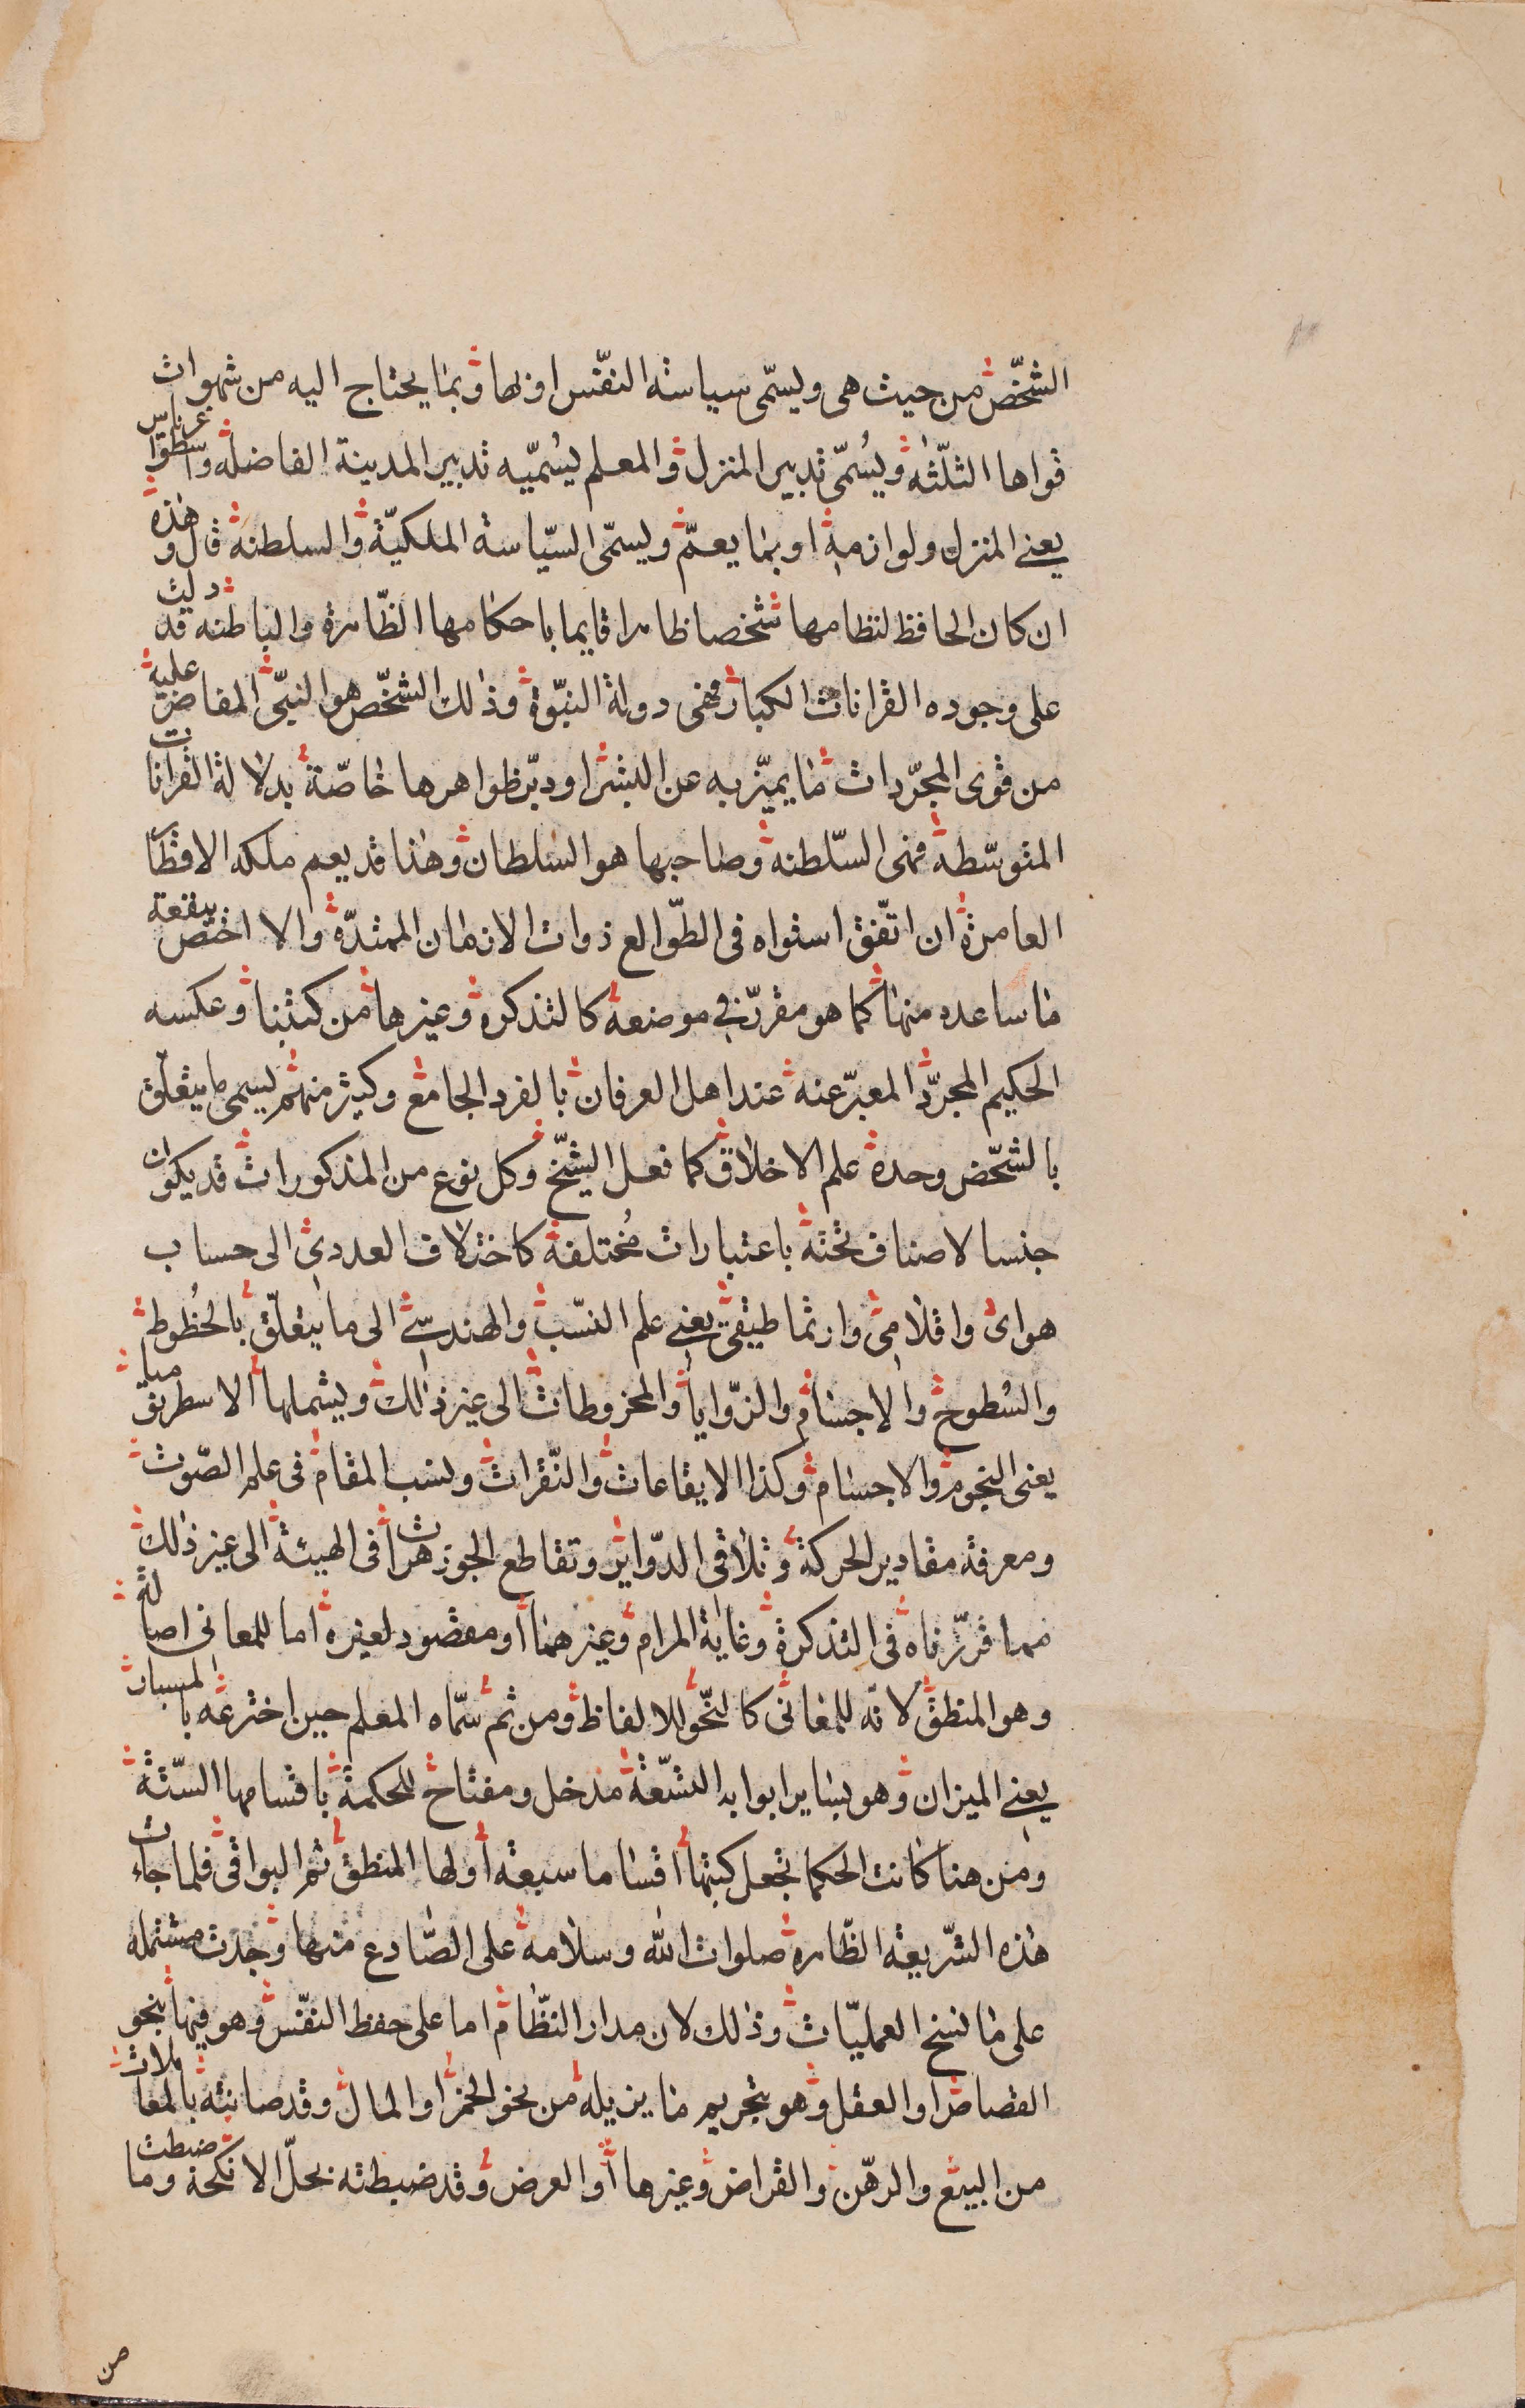 الشخّص من حيث هى ويسمّى سياسته النفّس اولها وبما يحتاج اليه من شهوات
قواها الثلثه ويُسمّى تدبير المنزل والمعلم يُسمّيه تدبير المدينة الفاضله واسطوا عرناس
يعنى المنزل ولوازمه او بما يعمّ ويسمّى السّياسة الملكيّة والسلطنة قال وهذه
ان كان الحافظ لنظامها شخصا ظاهرا قايما باحكامها الظّاهرة والباطنه قد دلت
على وجوده القرانات الكبار فهى دولة النبّوة وذلك الشخّص هو النبّى المفاض عليه
من قوى المجرّدات ما يميّز به عن البشر او دبّر ظواهرها خاصّة بدلالة القرانات
المتوسّطه فهى السّلطنه وصاحبها هو السلطان وهذا قد يعم ملكه الاقطا
العامرة ان اتّفق استواه فى الطّوالع ذوات الازمان الممتدّة والا اختص ببقعة
ما ساعده منها كما هو مقرّر فى موضعه كالتذكرة وغيرها من كتبنا وعكسه
الحكيم المجرّد المعبّر عنه عند اهل العرفان بالفرد الجامع وكثير منهم يسمى ما يتعلّق
بالشخّص وحده علم الاخلاق كما فعل الشيّخ وكل نوع من المذكورات قد يكون
جنسا لاصناف تحته باعتبارات مُختلفة كاختلاف العددى الى حساب
هواى واقلامى وارثماطيقى يعنى علم النسّب والهندسّى الى ما يتعلّق بالخُطوط
والسُطوح والاجسام والزّوايا والمخروطات الى غير ذلك ويشملها الاسطريقوميا
يعنى النجوم والاجسام وكذا الايقاعات والنّقرات ونسب المقام فى علم الصّوت
ومعرفة مقادير الحركة وتلاقى الدّواير وتقاطع الجوزهرات فى الهيئة الى غير ذلك
مما قرّرناه فى التذكرة وغاية المرام وغيرهما او مقصود لغيره اما للمعانى اصالة
وهو المنطق لانّه للمعانى كالنحّو للالفاظ ومن ثم سمّاه المعلم حين اخترعه بالمسبار
يعنى الميزان وهو بساير ابوابه التسّعة مدخل ومفتاح للحكمة باقسامها السّتة
ومن هنا كانت الحكما تجعل كتبها اقساما سبعة اولها المنطق ثم البواقى فلما جاءت
هذه الشّريعة الظّاهرة صلوات الله وسلامه على الصّادع منها وجدت مشتمله
على ما نسخ العمليّات وذلك لان مدار النظّام اما على حفظ النفّس وهو فيها بنحو
القصاص او العقل وهو بتحريم ما يزيله من نحو الخمر او المال وقد صانته بالمعاملات
من البيع والرهّن والقراض وغيرها او العرض وقد ضبطته بحلّ الانكحة وما ضبطت
من